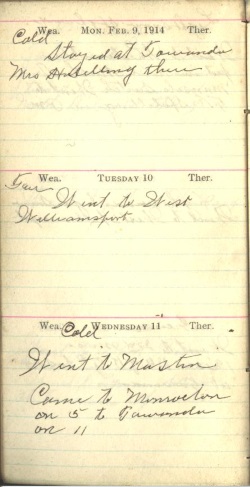 Wea. MON. FEB. 9, 1914 Ther.
Cold
Stayed at Towanda
Mrs Snelling there
Wea. TUESDAY 10 Ther.
Fair
Went to West
Williamsport
Wea. WEDNESDAY 11 Ther.
Cold
Went to Masten
Came to Monroeton
on 15 to Towanda
on 11